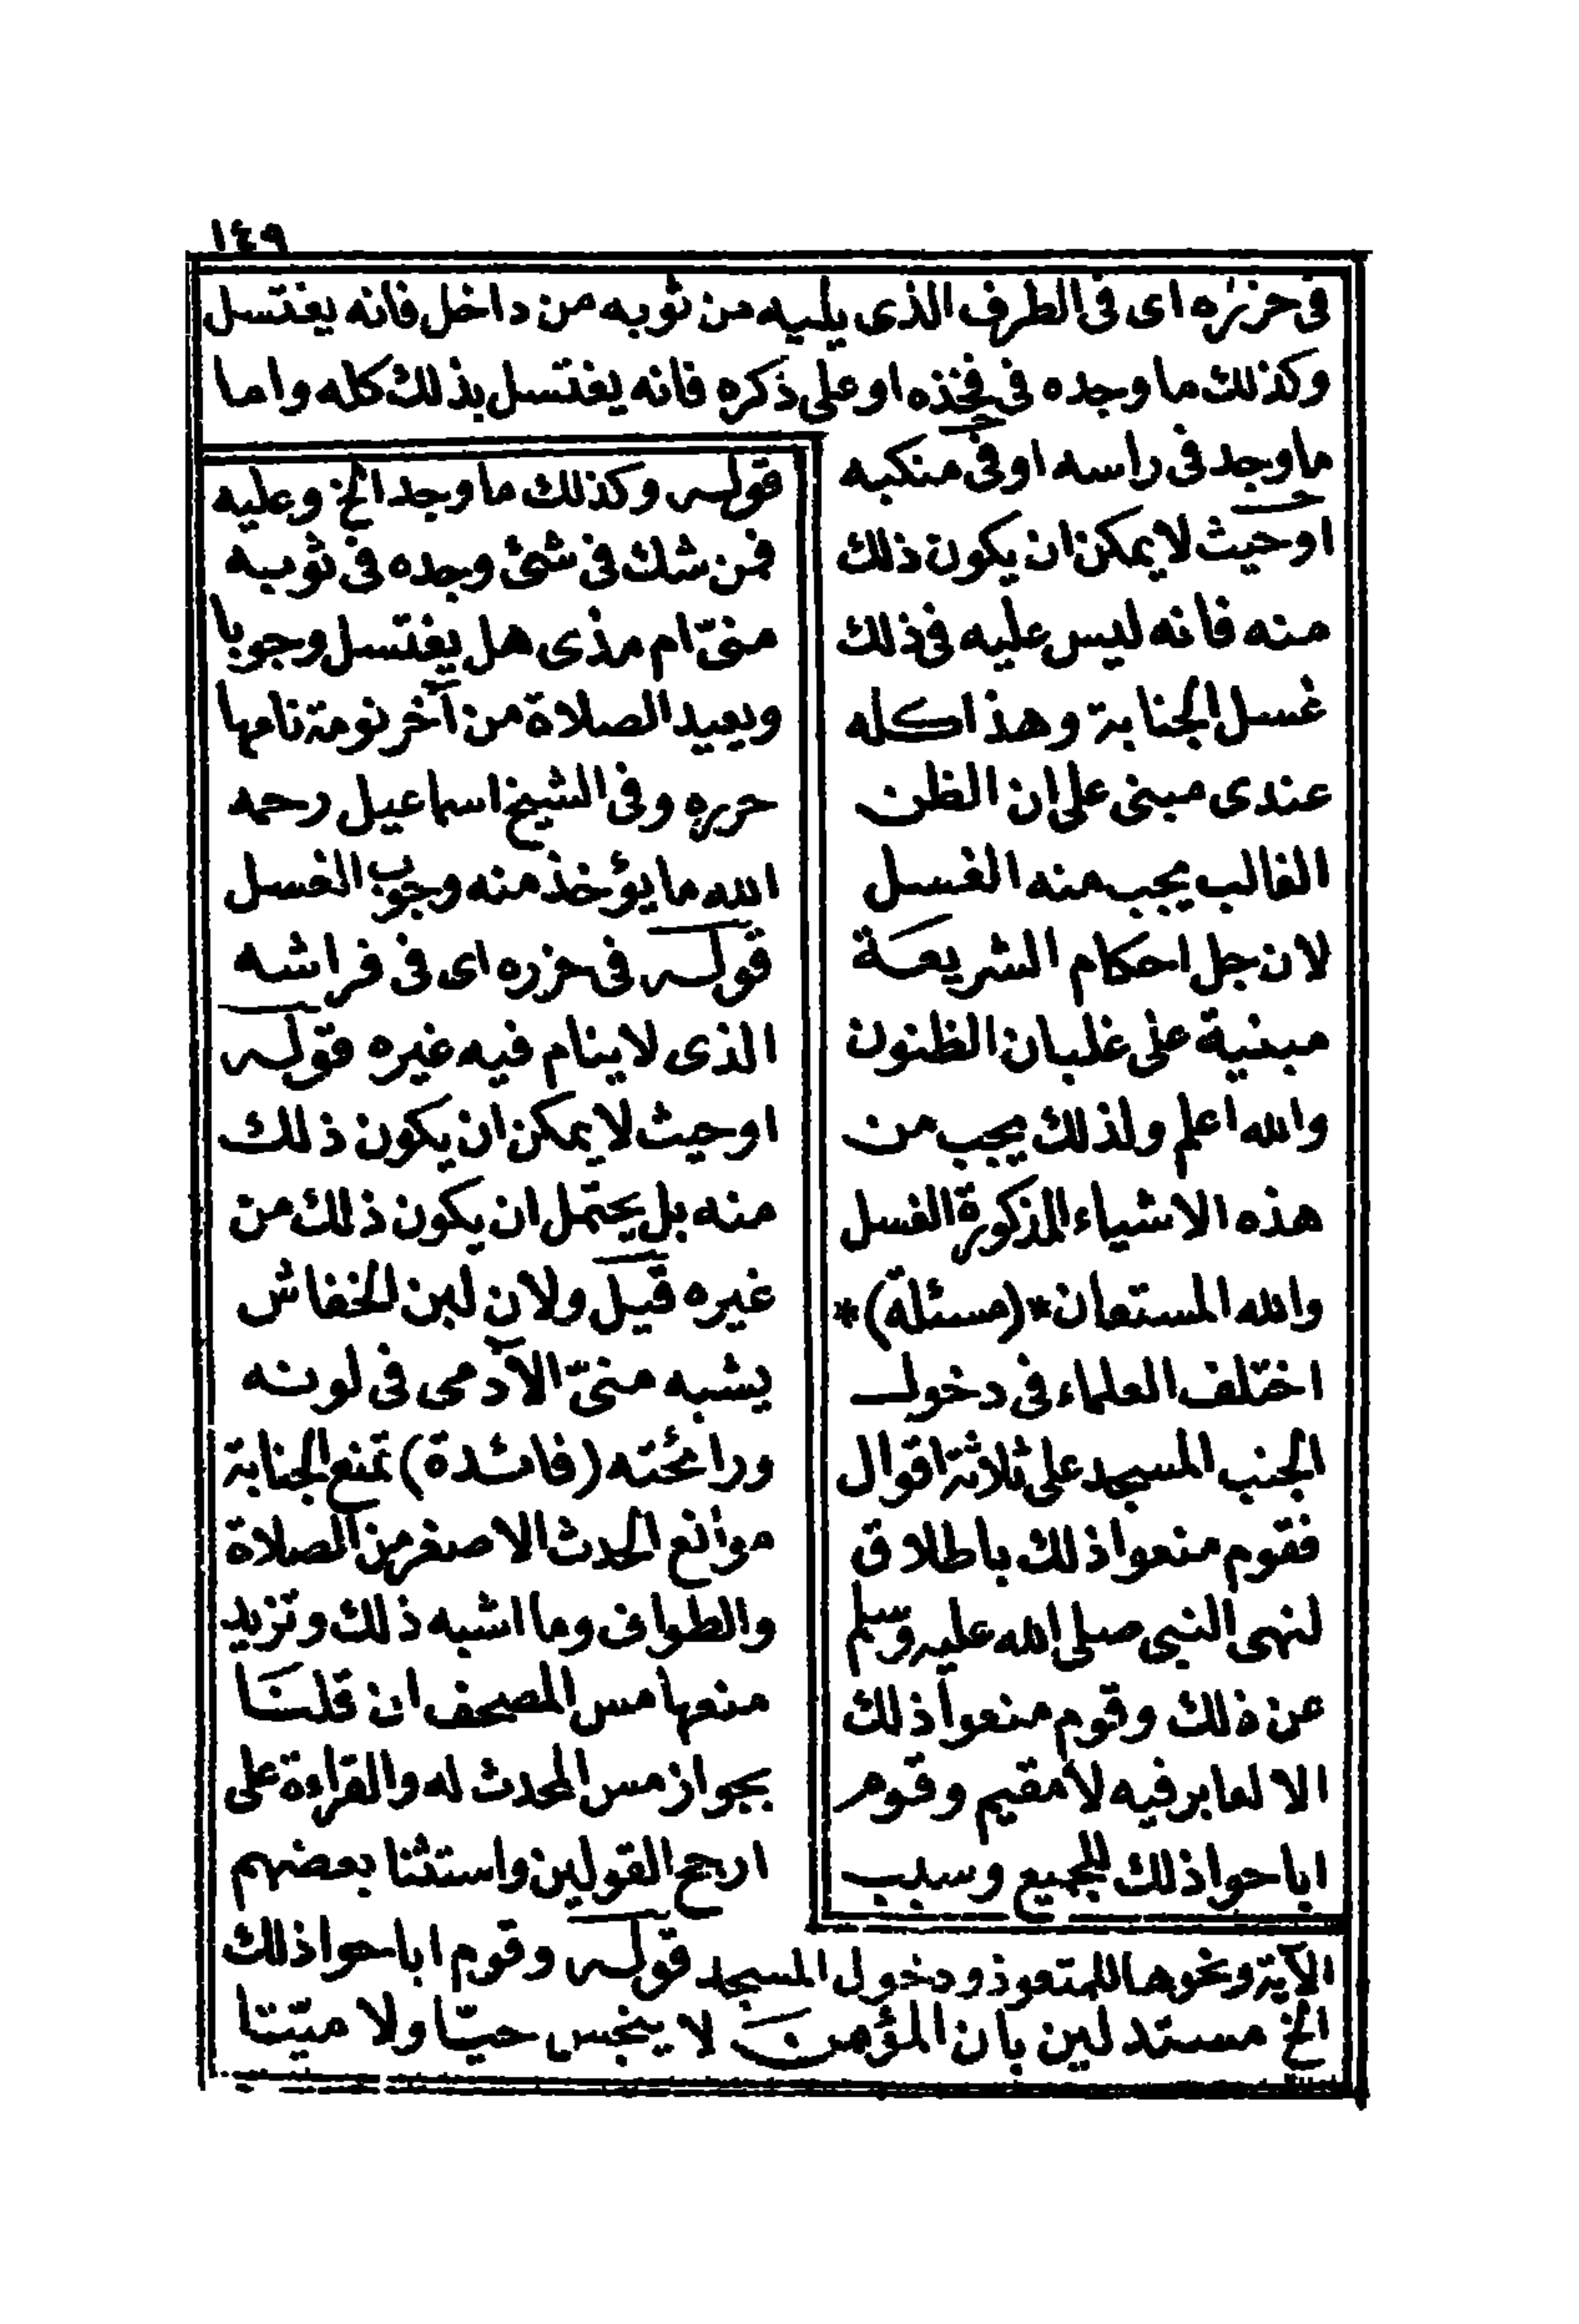 ١٤٩
فى حززه اى فى الطرف الذى يليه من ثوبه من داخل فانه يغتسل
وكذلك ما وجده فى فخذه او على ذكره فانه يغتسل بذلك كله واما
ما وجد فى راسه او فى منكبه
او حيث لا يمكن ان يكون ذلك
منه فانه ليس عليه فى ذلك
غسل الجنابة وهذا كله
عندى مبنى على ان الظن
الغالب يجب منه الغسل
لان جل احكام الشريعة
مبنية على غلبان الظنون
والله اعلم ولذلك يجب من
هذه الاشياء المذكورة الغسل
والله المستعان *(مسئلة)*
اختلف العلماء فى دخول
الجنب المسجد على ثلاثة اقوال
فقوم منعوا ذلك باطلاق
لنهى النبى صلى الله عليه وسلم
عن ذلك وقوم منعوا ذلك
الا لعابر فيه لا مقيم وقوم
اباحوا ذلك للجميع وسبب
قوله وكذلك ما وجد الخ وعليه
فمن شك فى شئ وجده فى ثوبه
منىّ ام مذى هل يغتسل وجوبا
ويعيد الصلاة من آخر نومة نامها
حرره وفى الشيخ اسماعيل رحمه
الله ما يؤخذ منه وجوب الغسل
قوله فى حززه اى فى فراشه
الذى لا ينام فيه غيره قوله
او حيث لا يمكن ان يكون ذلك
منه بل يحتمل ان يكون ذلك من
غيره قيل ولان لبن الخفاش
يشبه منىّ الآدمى فى لونه
ورائحته (فائدة) تمنع الجنابة
موانع الحدث الاصغر من الصلاة
والطواف وما اشبه ذلك وتزيد
منعها مس المصحف ان قلنا
بجواز مس المحدث له والقراءة على
ارجح القولين واستثنا بعضهم
الآية ونحوها للمتعوذ ودخول المسجد قوله وقوم اباحوا ذلك
الخ مستدلين بان المؤمن لا ينجس حيّا ولا ميّتا